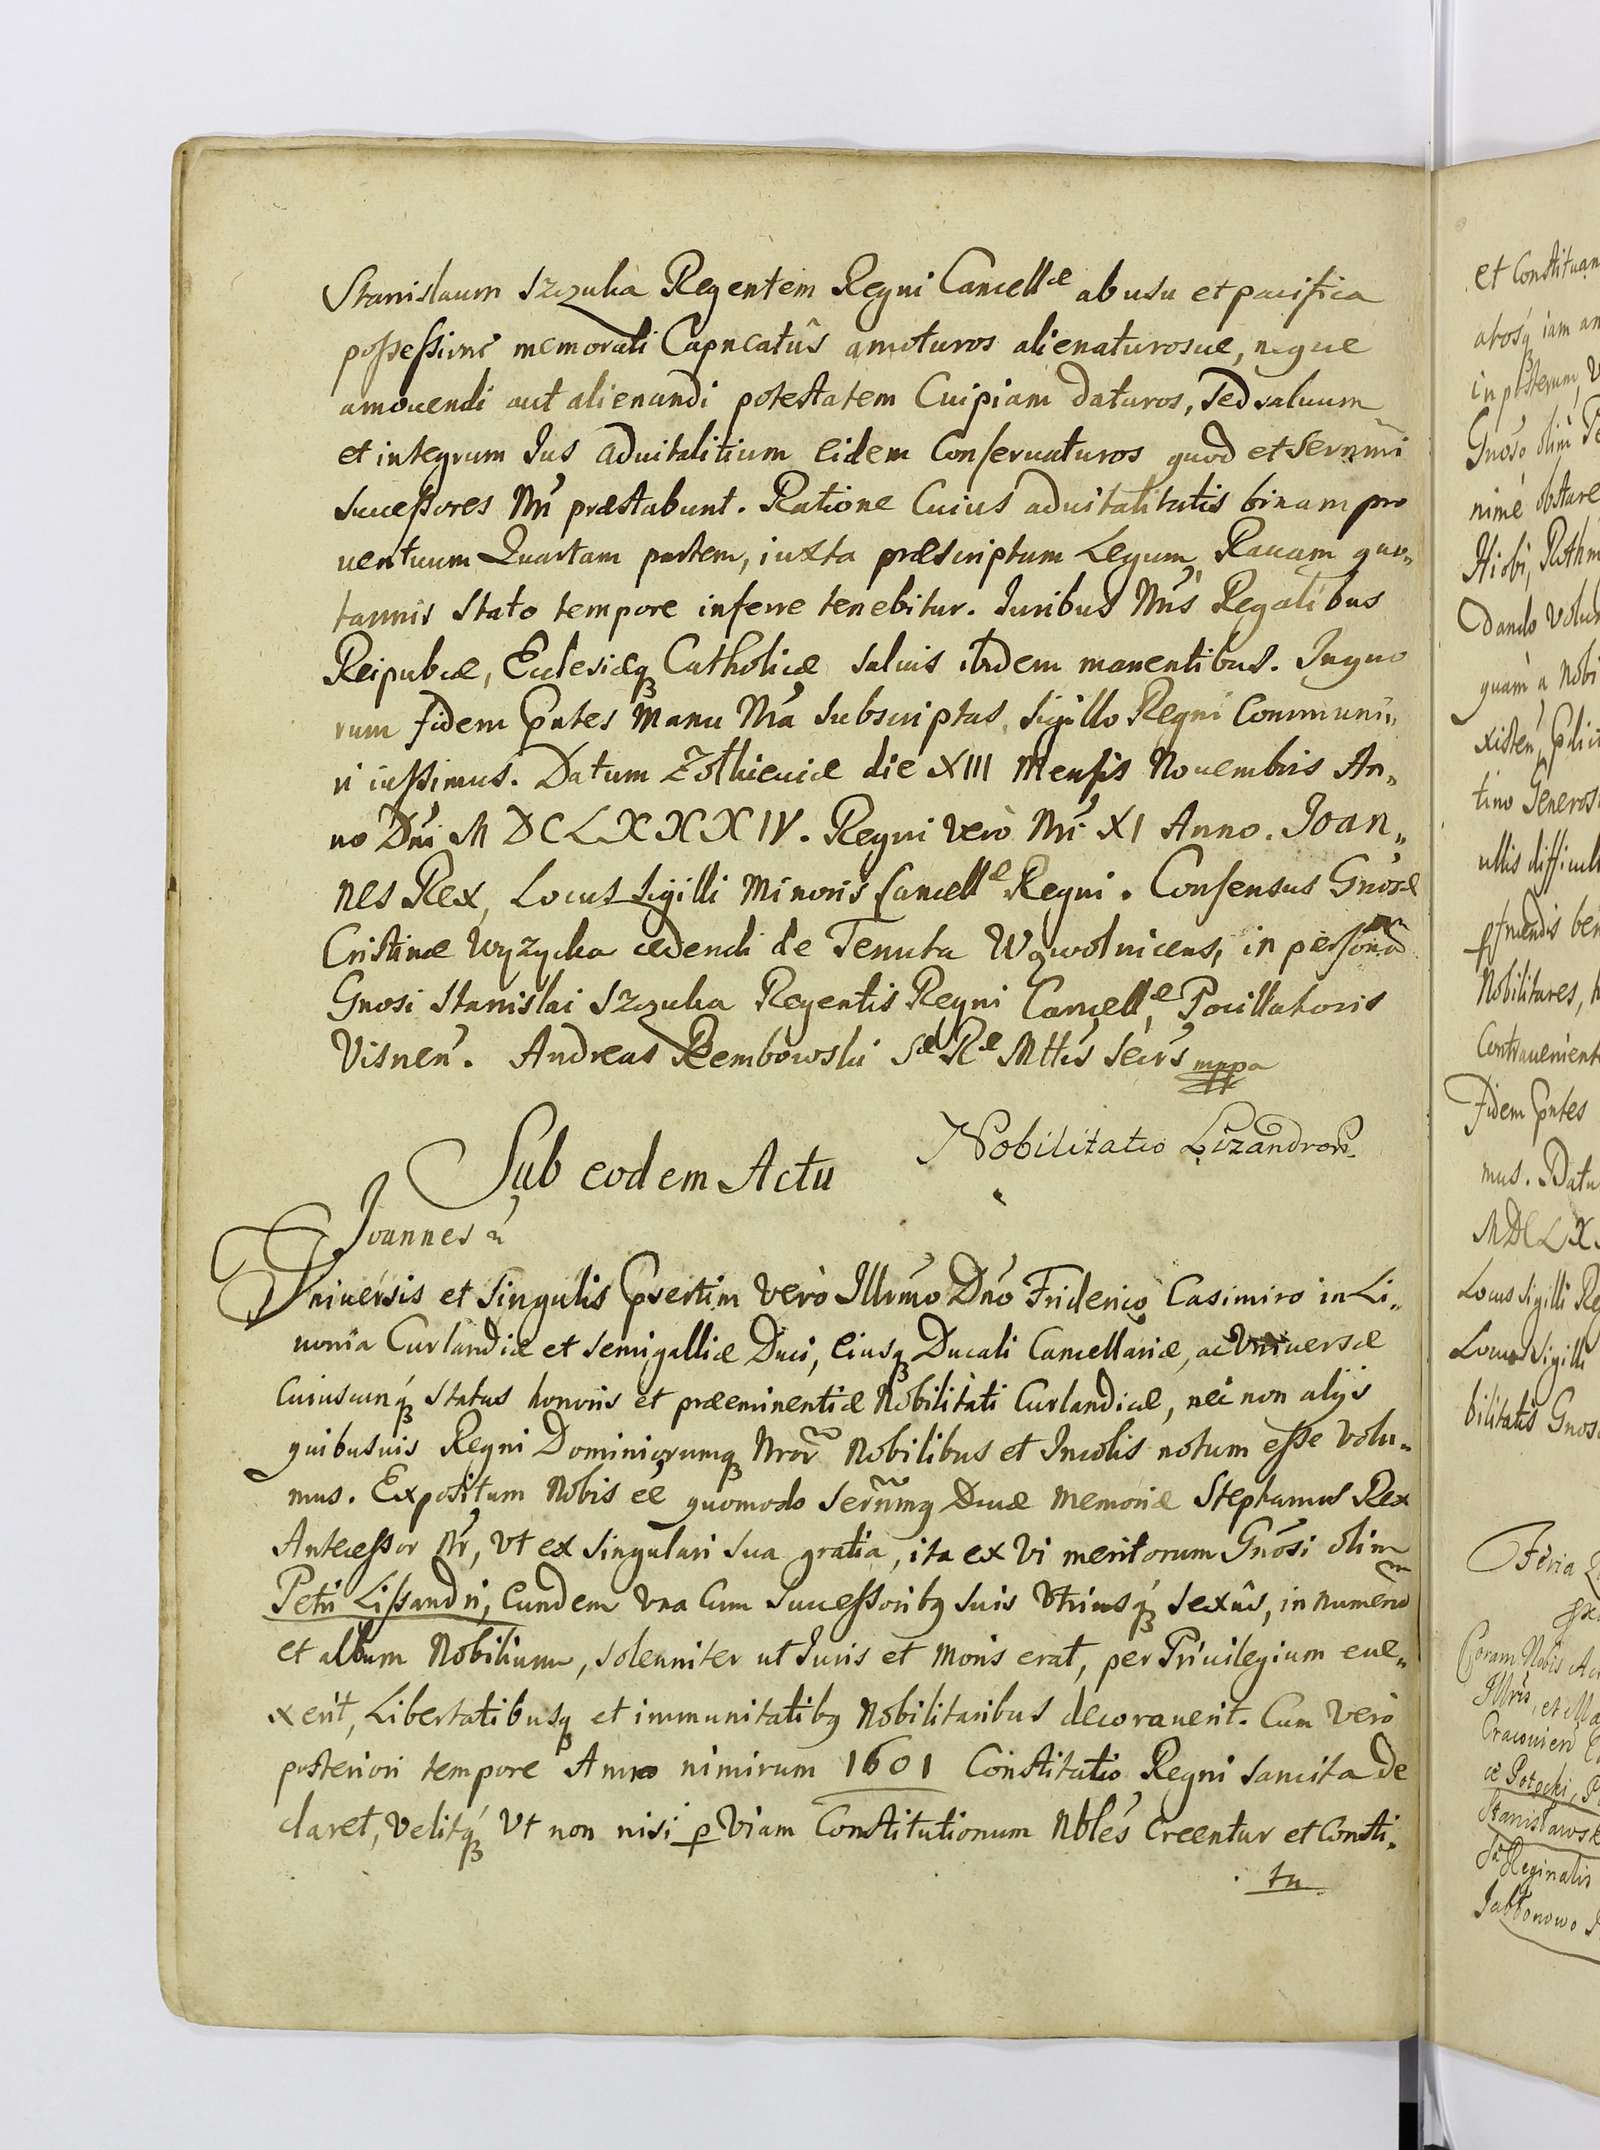 Stanislaum Szczuka Regentem Regni Cancellæ ab usu et pacifica
possessione memorati Capneatûs amoturos alienaturosue, neque
amouendi aut alienandi potestatem Cuipiam daturos, Sed saluum
et integrum Jus aduitalitium eidem Conseruaturos quod et Sernmi
Successores Nri præstabunt. Ratione Cuius aduitalitatis binam pro
uentuum Quartam partem, iuxta præscriptum Legum, Rauam quo„
tannis Stato tempore inferre tenebitur. Juribus Nris Regalibus
Reipubcæ, Ecclesiæq Catholicæ saluis ibidem manentibus. In quo
rum fidem Pntes Manu Nra Subscriptas, Sigillo Regni Communi„
ri iussimus. Datum Zolkieuiæ die XIII Mensis Nouembris An„
no Dni M DCLXXXIV. Regni vero Nri XI Anno. Joan„
nes Rex, Locus Sigilli Minoris Cancellæ Regni. Consensus Gnosæ
Cristinæ Wyzycka cedendi de Tenuta Wąwolnicens, in personã
Gnosi Stanislai Szczuka Regentis Regni Cancellæ, Pocillatoris
Visnen. Andreas Rembowski Sæ Ræ Mttis Secrs mppa
Nobilitatio Lizandrorũ
Sub eodem Actu
Joannes
Vniuersis et Singulis Prsertim verò Illrmo Dno Friderico Casimiro in Li„
uonia Curlandiæ et Semigalliæ Duci, Eiusq Ducali Cancellariæ, ac Vniuersæ
Cuiuscunq Status honoris et præeminentiæ Nobilitati Curlandicæ, nec non alijs
quibusuis Regni Dominiorumq Nrorũ Nobilibus et Incolis notum esse Volu„
mus. Expositum Nobis eê quomodo Sernmq Diuæ Memoriæ Stephanus Rex
Antecessor Nr, Vt ex Singulari Sua gratia, ita ex Vi meritorum Gnosi olim
Petri Lissandri, Eundem Vna Cum Successoribq Suis Vtriusq Sexûs, in numerũ
et album Nobilium, Solenniter ut Juris et Moris erat, per Priuilegium eue„
xerit, Libertatibusq et immunitatibq Nobilitaribus decorauerit. Cum Verò
posteriori tempore Anno nimirum 1601 Constitutio Regni Sancita De
claret, Velitq Vt non nisi p Viam Constitutionum Nbles Creentur et Consti„
tu
et Constituan
atosq iam an
in posterum, V
Gnoso olim Pe
nimè obstare
Hiobi, Rothm
dando Volu
quam a Nobi
tino Generos
ullis difficul
Nobilitares, h
Contrauenient
Fidem Pntes
mus. Datu
MDCLX
Locus Sigilli Re
Locus Sigilli
bilitatis Gnos
Feria
Coram Nobis Ac
Illris, et Ma
Cracouien
æ Potocki, P
Stanisławsk
Sæ Reginalis
Jabłonowo J